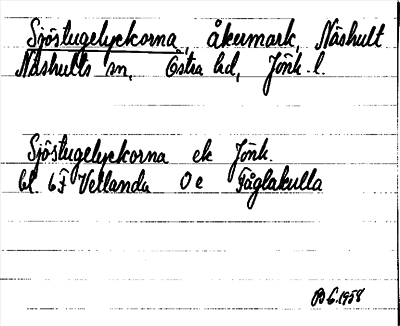 Sjöstugelyckorna, åkermark, Näshult
Näshults sn, Östra hd, Jönk. l.
Sjöstugelyckorna ek Jönk.
bl. 6F Vetlanda 0e Fåglakulla
1958